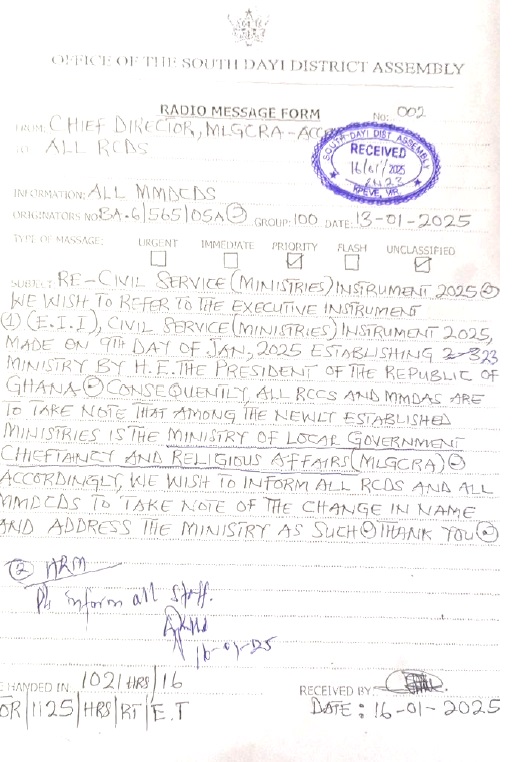 OFFICE OF THE SOUTH DAYI DISTRICT ASSEMBLY
RADIO MESSAGE FORM
No: 002
FROM: CHIEF DIRECTOR, MLGCRA-ACC
TO ALL RCDS
SOUTH DAYI DIST. ASSEMBLY
RECEIVED
16/01/2025
KPEVE, V/R.
INFORMATION: ALL MMDCDS
ORIGINATORS NO: BA.6/565/05A GROUP: 100 DATE: 13-01-2025
TYPE OF MASSAGE: URGENT IMMEDIATE PRIORITY FLASH UNCLASSIFIED
SUBJECT RE-CIVIL SERVICE (MINISTRIES) INSTRUMENT 2025
WE WISH TO REFER TO THE EXECUTIVE INSTRUMENT
(1) (E.I.I), CIVIL SERVICE (MINISTRIES) INSTRUMENT 2025,
MADE ON 9TH DAY OF JAN, 2025 ESTABLISHING 23
MINISTRY BY H.E. THE PRESIDENT OF THE REPUBLIC OF
GHANA CONSEQUENTLY, ALL RCCS AND MMDAS ARE
TO TAKE NOTE THAT AMONG THE NEWLY ESTABLISHED
MINISTRIES IS THE MINISTRY OF LOCAL GOVERNMENT
CHIEFTAINCY AND RELIGIOUS AFFAIRS (MLGCRA)
ACCORDINGLY, WE WISH TO INFORM ALL RCDS AND ALL
MMDCDS TO TAKE NOTE OF THE CHANGE IN NAME
AND ADDRESS THE MINISTRY AS SUCH THANK YOU
(2) HRM
Pls inform all staff.
16-01-25
E HANDED IN: 1021 HRS/16
RECEIVED BY:
OR/1125/HRS/RT/E.T
DATE: 16-01-2025